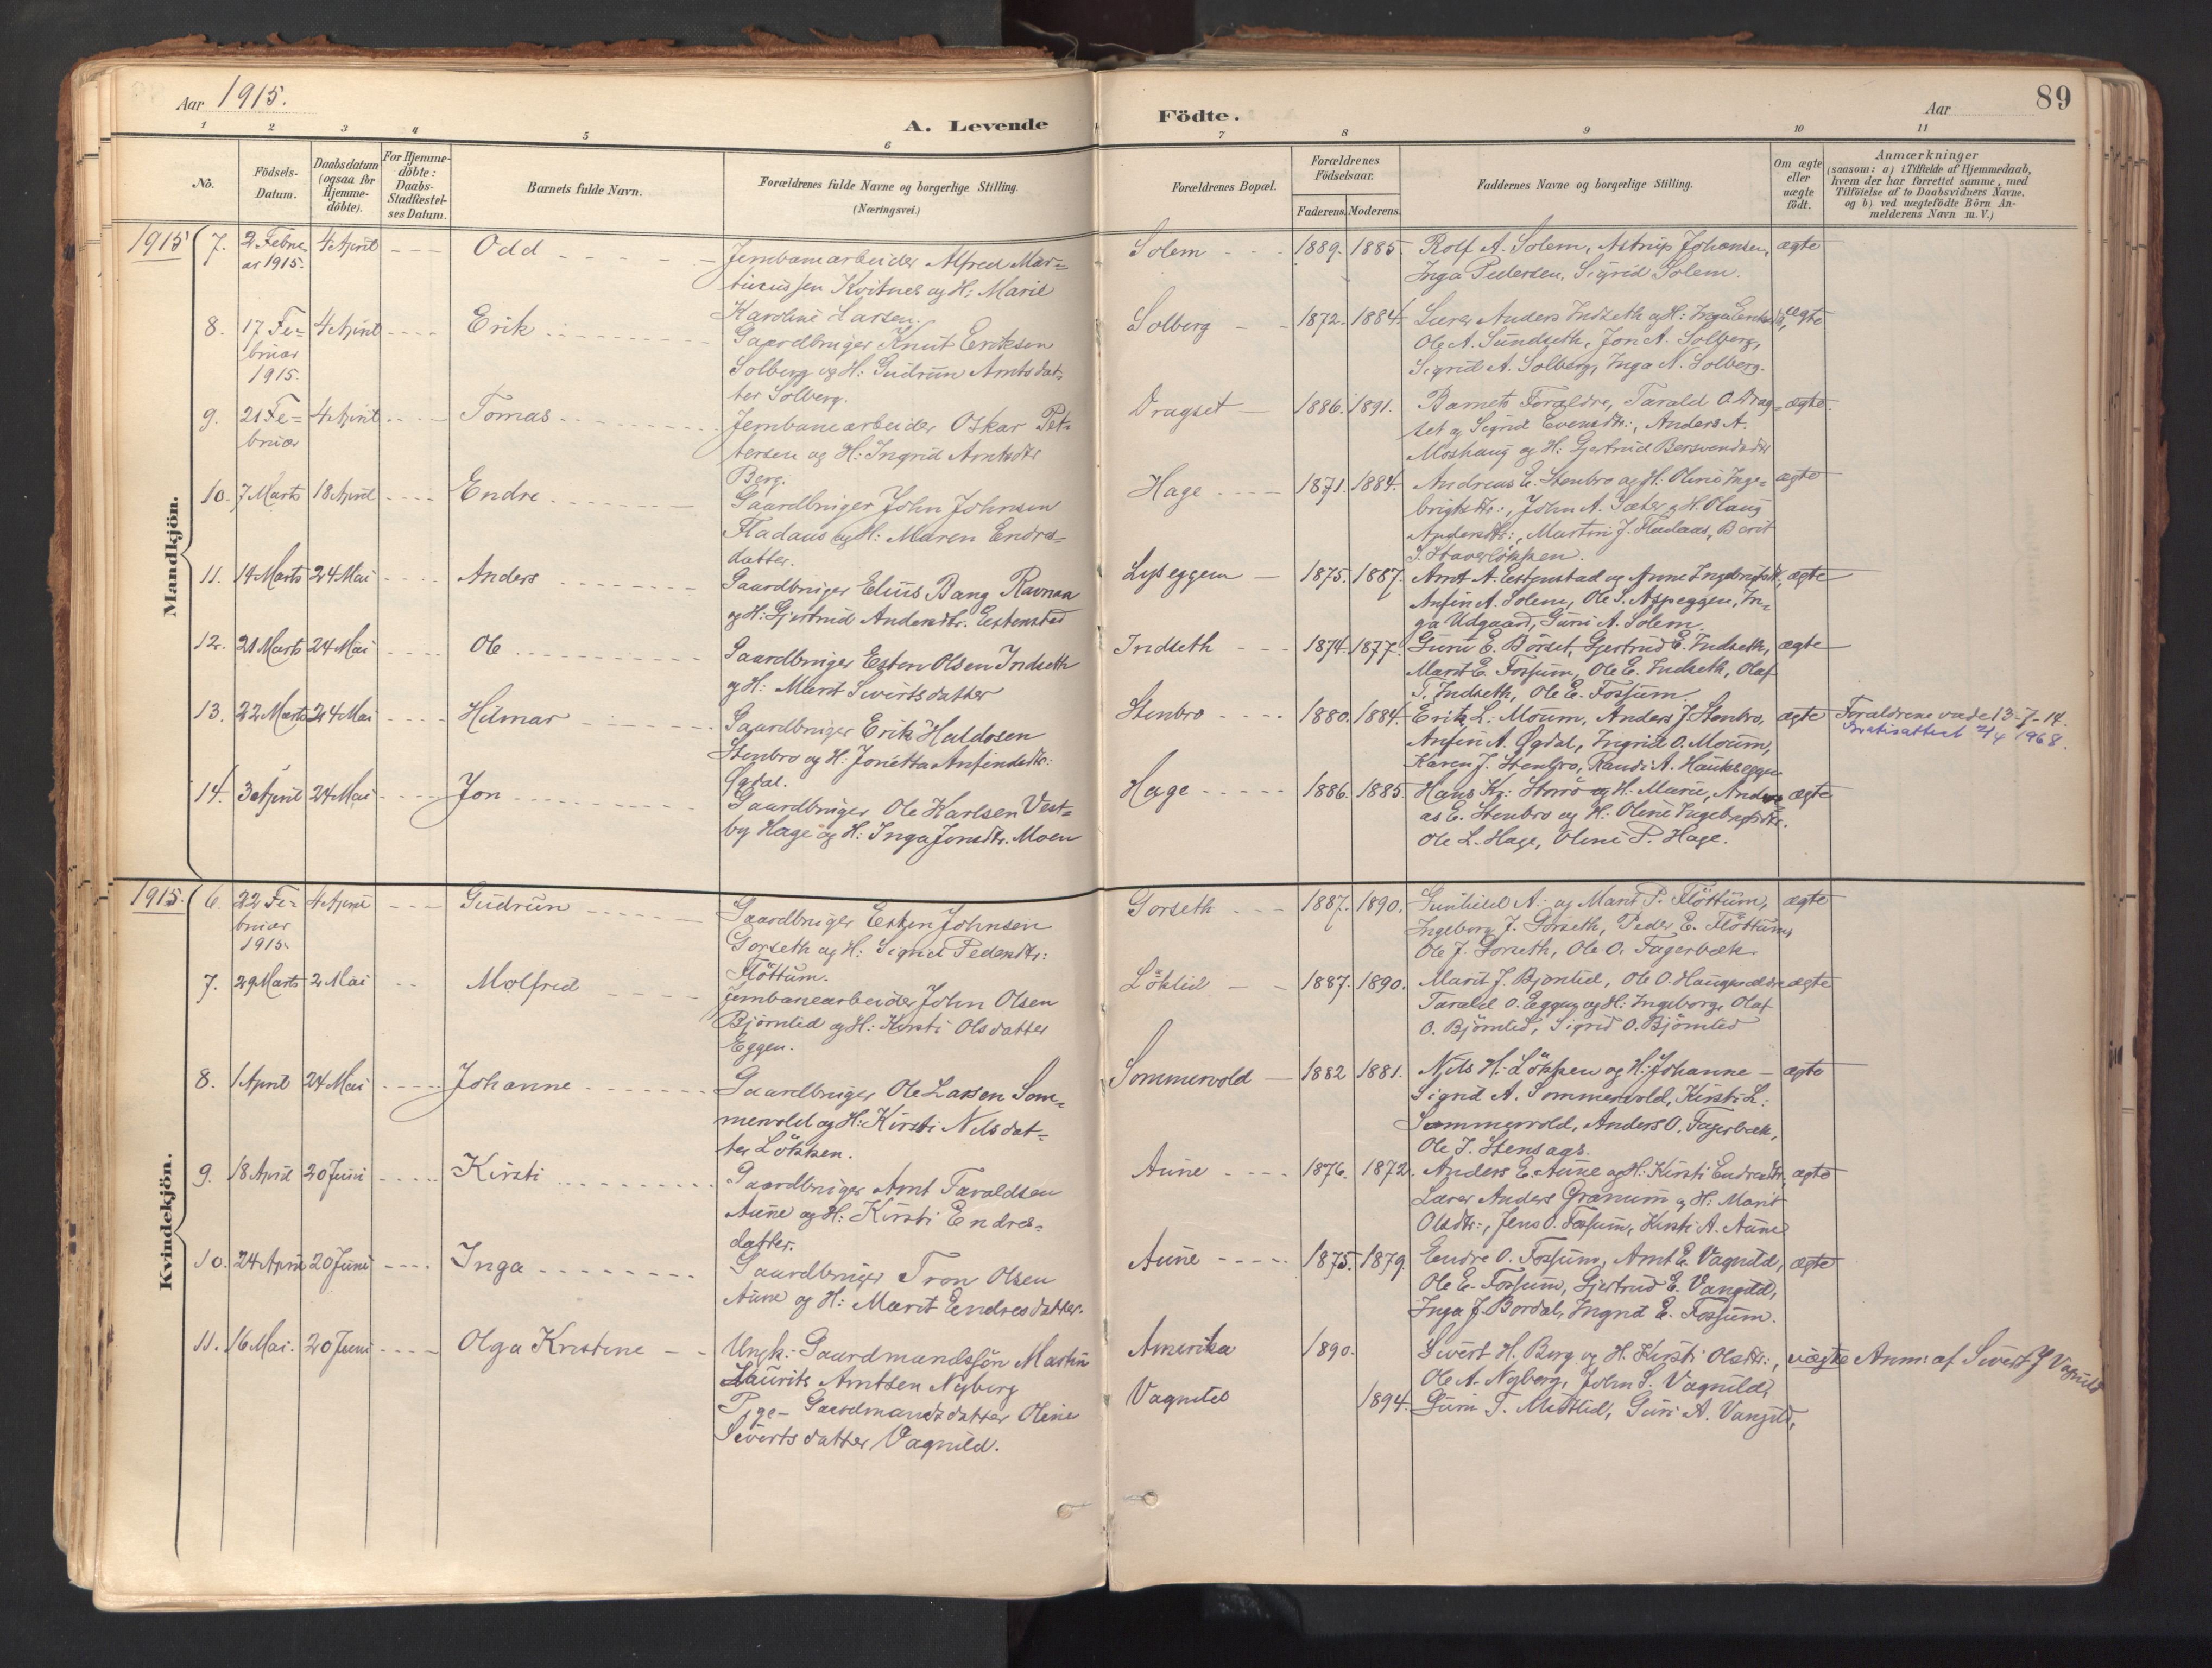 Aar 1915.
A. Levende
1 2 3 4 5 6
No.
Födsels-
Datum.
Daabsdatum
(ogsaa for
Hjemme-
döbte).
For Hjemme-
döbte:
Daabs-
Stadfæstel-
ses Datum.
Barnets fulde Navn.
Forældrenes fulde Navne og borgerlige Stilling.
(Næringsvei.)
Mandkjön.
1915 7. 2 Febru 4 April Odd
ar 1915.
Jernbanearbeider Alfred Mar=
tinussen Kvitnes og H: Marie
Karoline Larsen.
8. 17 Fe= 4 April Erik
bruar
1915.
Gaardbruger Knut Eriksen
Solberg og H: Gudrun Arntsdat=
ter Solberg.
9. 21 Fe= 4 April Tomas
bruar
Jernbanearbeider Oskar Pet=
tersen og H: Ingrid Arntsdtr
Berg.
10. 7 Marts 18 April Endre
Gaardbruger John Johnsen
Fladaas og H: Maren Endres=
datter.
11. 14 Marts 24 Mai Anders
Gaardbruger Elius Bang Ravnaa
og H: Gjertrud Andersdtr. Estenstad
12. 21 Marts 24 Mai Ole
Gaardbruger Esten Olsen Indseth
og H: Marit Sivertsdatter
13. 22 Marts 24 Mai Hilmar
Gaardbruger Erik Haldosen
Stenbro og H: Jonetta Anfindsdtr:
Øgdal.
14. 3 April 24 Mai Jon
Gaardbruger Ole Karlsen Vest=
by Hage og H: Inga Jonsdtr. Moen
Kvindekjön.
1915. 6. 22 Fe= 4 April Gudrun
bruar
1915.
Gaardbruger Esten Johnsen
Gorseth og H: Sigrid Pedersdtr:
Flöttum.
7. 29 Marts 2 Mai Molfrid
Jernbanearbeider John Olsen
Bjørnlid og H: Kirsti Olsdatter
Eggen.
8. 1 April 24 Mai Johanne
Gaardbruger Ole Larsen Som=
mervold og H: Kirsti Nilsdat=
ter Lökken.
9. 18 April 20 Juni Kirsti
Gaardbruger Arnt Taraldsen
Aune og H: Kirsti Endres=
datter.
10. 24 April 20 Juni Inga
Gaardbruger Tron Olsen
Aune og H: Marit Endresdatter.
11. 16 Mai. 20 Juni Olga Kristine
Ungk: Gaardmandssön Martin
Laurits Arntsen Nyberg
Pige - Gaardmandsdatter Oline
Sivertsdatter Vagnild.
Födte.
Aar 89
7 8 9 10 11
Forældrenes Bopæl.
Forældrenes
Födselsaar.
Faderens. Moderens.
Faddernes Navne og borgerlige Stilling.
Om ægte
eller
uægte
födt.
Anmærkninger
(saasom: a) i Tilfælde af Hjemmedaab,
hvem der har forrettet samme, med
Tilföielse af to Daabsvidners Navne.
og b) ved uægtefödte Börn An-
melderens Navn m. V.)
Solem 1889. 1885. Rolf A. Solem, Astrup Johansen, ægte
Inga Pedersen, Sigrid Solem.
Solberg 1872. 1884. Lærer Anders Indseth og H: Inga ægte
Ole A. Sundseth, Jon A. Solberg,
Sigrid A. Solberg, Inga N. Solberg.
Dragset 1886. 1891. Barnets Forældre, Tarald O. Drag= ægte.
set og Sigrid Evensdtr:, Anders A.
Moshaug og H: Gjertrud Bersvendsdtr
Hage 1871. 1884. Andreas E. Stenbro og H: Oline Inge= ægte
brigtsdtr:, John A. Sæter og H. Olaug
Andersdtr:, Martin J. Fladaas, Berit
J. Staverløkken.
Lyseggen 1875. 1887. Arnt A. Estenstad og Anne Ingebrigtsdt, ægte
Anfin A. Solem, Ole S. Aspeggen, In=
ga Udgaard, Guri A. Solem.
Indseth 1874. 1877. Guru E. Börset, Gjertrud E. Indseth, ægte
Marit E. Fossum, Ole E. Indseth, Olaf
T. Indseth, Ole E. Fossum.
Stenbro 1880. 1884. Erik L. Moum, Anders J. Stenbro, ægte Forældrene viede 13-7-14.
Gratisattest 2/4 1968.
Anfin A. Øgdal, Ingrid O. Moum,
Karen J. Stenbro, Randi A. Haukseggen
Hage 1886. 1885. Hans Kr: Störö og H. Marie, Andre ægte
as E. Stenbro og H: Oline Ingebrigtsdtr.
Ole L. Hage, Oline P. Hage.
Gorseth 1887. 1890. Gunhild A: og Marit P. Flöttum, ægte
Ingeborg J. Gorseth, Peder E. Flöttum,
Ole J. Gorseth, Ole O. Fagerbæk.
Löklid 1887. 1890. Marit J. Bjørnlid, Ole O. ægte
Tarald O. Eggen og H: Ingeborg, Olaf
O. Bjørnlid, Sigrid O. Bjørnlid
Sommervold 1882 1881. Nils H. Lökken og H: Johanne ægte
Sigrid A. Sommervold, Kirsti L:
Sommervold, Anders O. Fagerbæk,
Ole J. Stensaas.
Aune 1876. 1872. Anders E. Aune og H: Kirsti Endresdtr, ægte
Lærer Anders Granum og H: Marit
Olsdtr:, Jens O. Fossum, Kirsti A. Aune
Aune 1875. 1879. Endre O. Fossum, Arnt E. Vagnild, ægte
Ole E. Fossum, Gjertrud E. Vangild,
Inga J. Bordal, Ingrid E. Fossum.
Amerika 1890. Sivert H. Berg og H. Kirsti Olsdtr:, uægte Anm: af Sivert J Vagnild
Ole A. Nyberg, John S. Vagnild,
Vagnild 1894. Guri T. Midtlid, Guri A. Vangild,